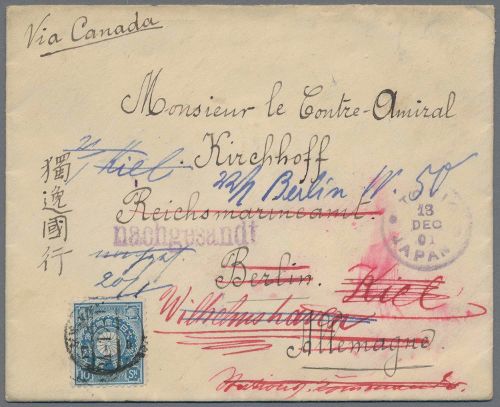 Via Canada
Monsieur le Contre-Amiral
Kirchhoff
Kiel
Berlin W. 50
Reichsmarineamt
nachgesandt
Berlin
Kiel
Wilhelmshaven
Allemagne
獨逸國行
TOKIO
13
DEC
01
JAPAN
10 Sn